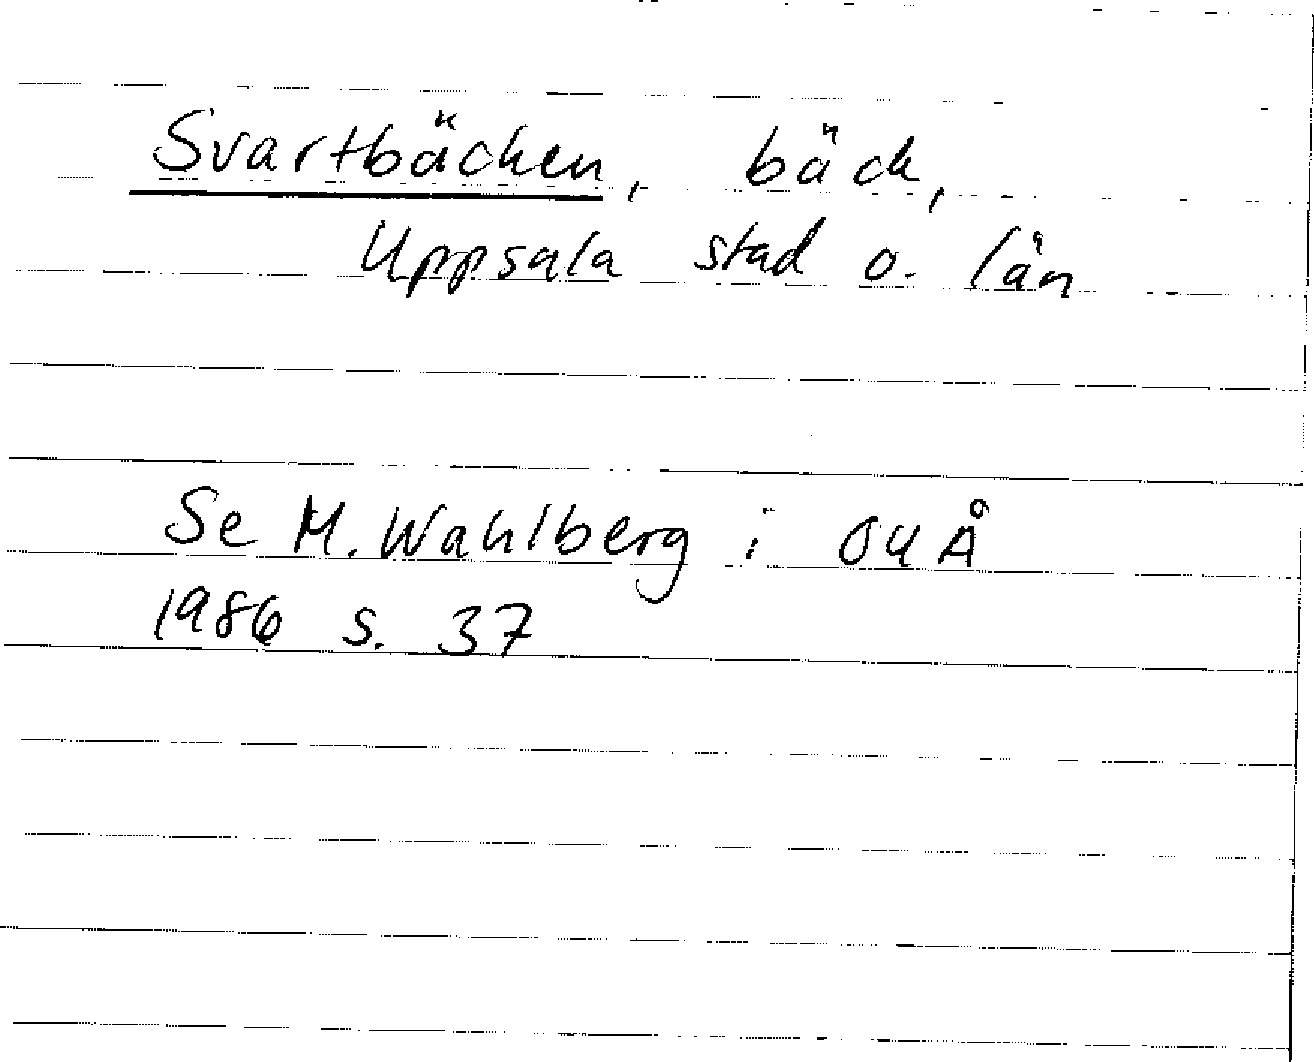 Svartbäcken, bäck,
Uppsala stad o. län
Se M. Wahlberg i OUÅ
1986 s. 37